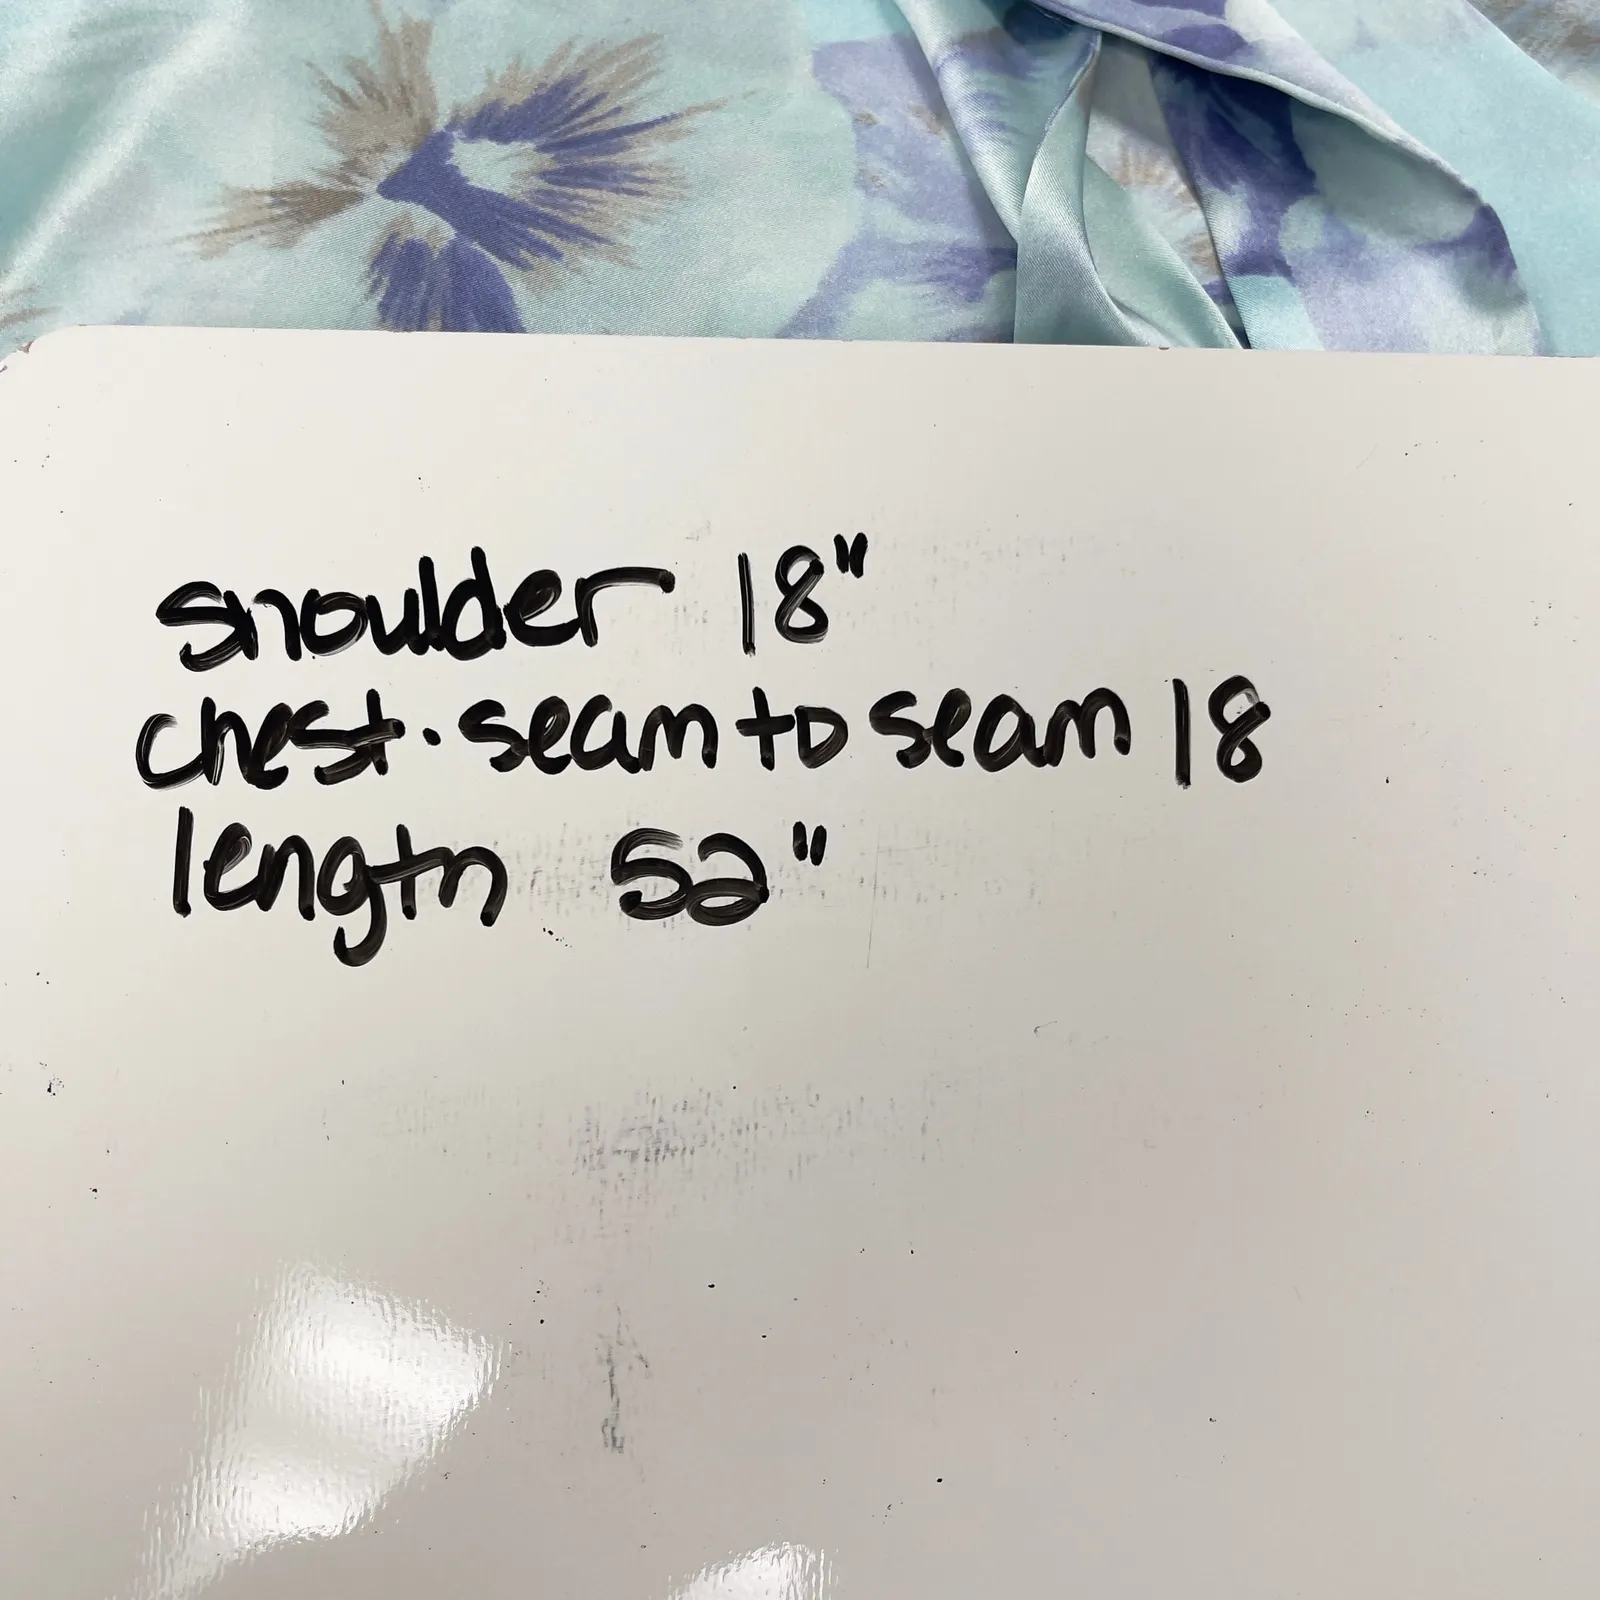 shoulder 18"
chest. seam to seam 18
length 52"